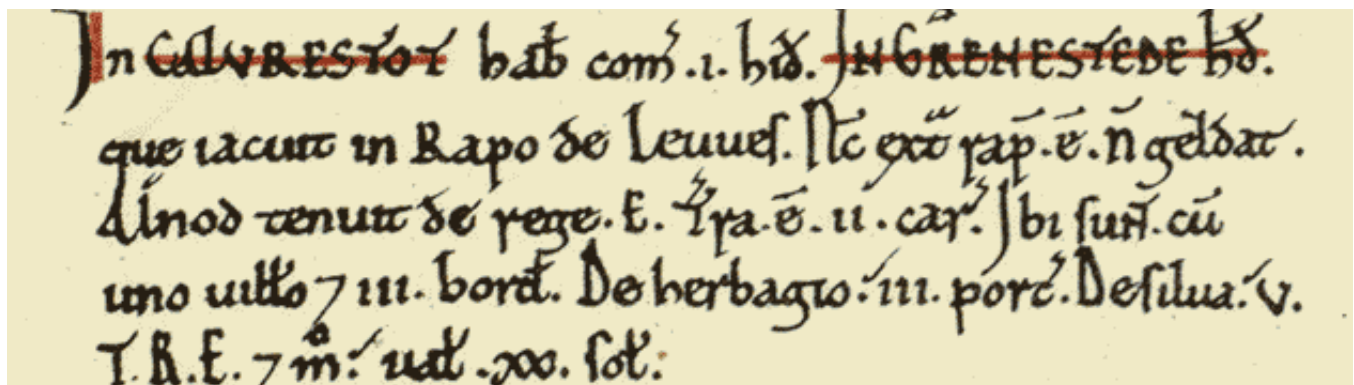 In CALVRESTOT hab̄ com̄ .i. hid̄. IN GRENESTEDE hd̄.
que iacuit in Rapo de Leuues. Nc̄ ext̄ rap̄ . ē . n̄ geldat .
Alnod tenuit de rege . E . Tr̄a . ē . ii . car̄. Ibi sunt̄ . cū
uno uill̄o ⁊ iii . bord̄. De herbagio: iii . porc̄. De silua: v.
T. R. E. ⁊ m̊: ual̄ .xx. sol̄.